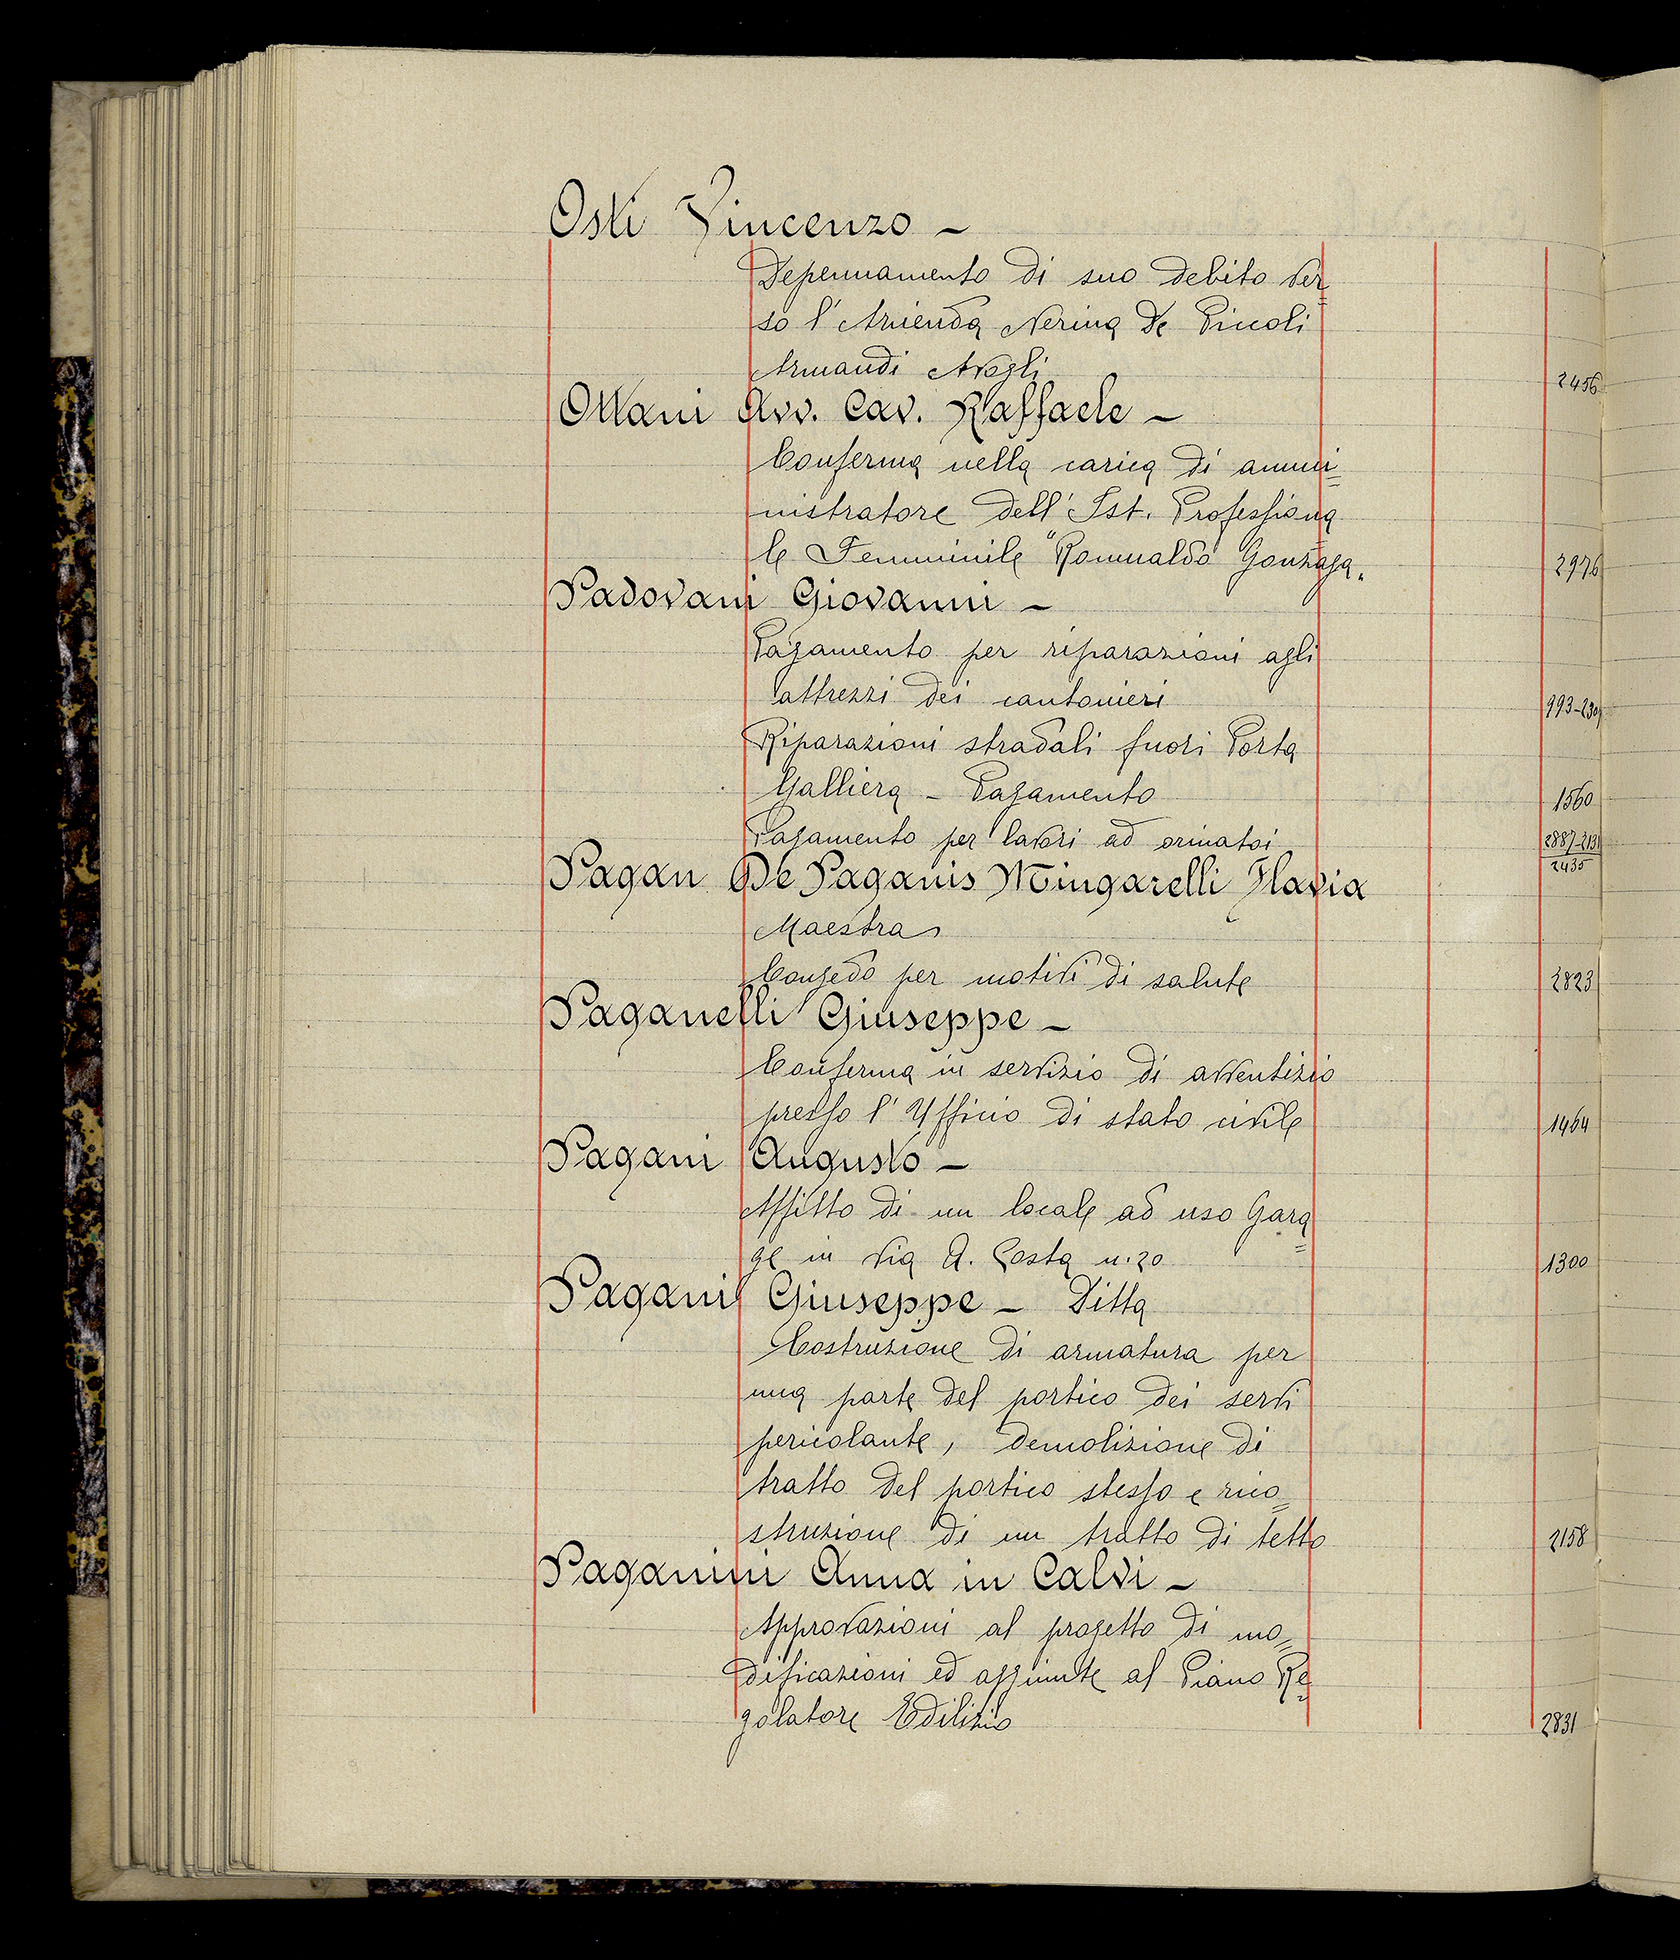 Osti Vincenzo –
Depennamento di suo debito ver=
so l'Azienda Nerina De Piccoli
Armandi Avogli 2456
Ottani Avv. Cav. Raffaele –
Conferma nella carica di ammi=
nistratore dell'Ist. Professiona
le Femminile "Romualdo Gonzaga. 2976
Padovani Giovanni –
Pagamento per riparazioni agli
attrezzi dei cantonieri 993-
Riparazioni stradali fuori Porta
Galliera – Pagamento 1560
Pagamento per lavori ad orinatoi 2887-2131
2435
Pagan De Paganis Mingarelli Flavia
Maestra
Congedo per motivi di salute 2823
Paganelli Giuseppe –
Conferma in servizio di avventizio
presso l'Ufficio di stato civile 1464
Pagani Augusto –
Affitto di un locale ad uso Gara=
ge in via A. Costa n. 20 1300
Pagani Giuseppe – Ditta
Costruzione di armatura per
una parte del portico dei servi
pericolante, demolizione di
tratto del portico stesso e rico=
struzione di un tratto di tetto 2158
Paganini Anna in Calvi –
Approvazioni al progetto di mo=
dificazioni ed aggiunte al Piano Re=
golatore Edilizio 2831